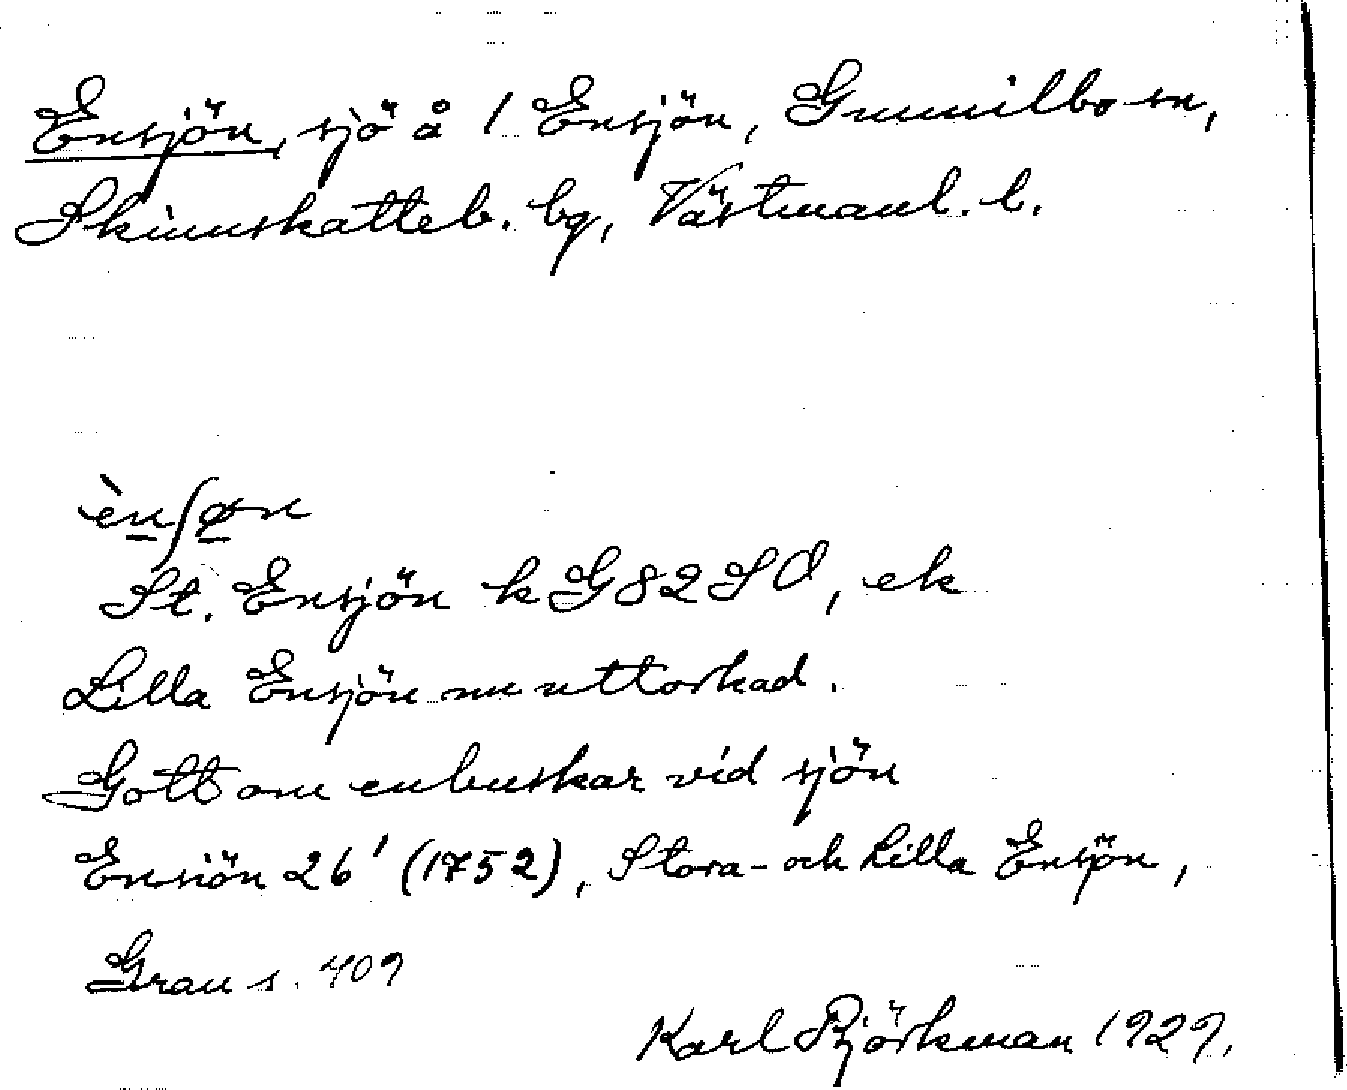 Ensjön, sjö å 1 Ensjön, Gunnilbo sn,
Skinnskatteb. bg, Västmanl. l.
ènʃøn
St. Ensjön k G82SO, ek
Lilla Ensjön nu uttorkad.
Gott om enbuskar vid sjön
Ensiön 26' (1752), Stora- och Lilla Ensjön,
Grau s. 409
Karl Björkman 1929.